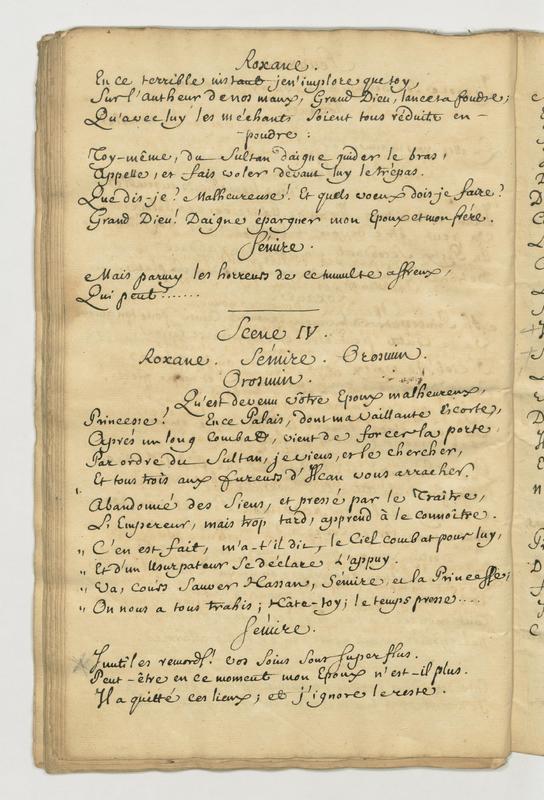 Roxane.
En ce terrible instant je n'implore que toy,
Sur l'Autheur de nos maux, Grand Dieu, lance ta foudre;
Qu'avec luy les méchants soient tous réduits en –
– poudre :
Toy-même, du Sultan daigne guider le bras,
Appelle, et fais voler devant luy le trépas.
Que dis-je? Malheureuse! Et quels voeux dois-je faire?
Grand Dieu! Daigne épargner mon Epoux et mon frére.
Sémire.
Mais parmy les horreurs de ce tumulte affreux,
Qui peut.......
Scene IV.
Roxane. Sémire. Orosmin.
Orosmin.
Qu'est devenu vôtre Epoux malheureux,
Princesse? En ce Palais, dont ma vaillante escorte,
Aprés un long combat, vient de forcer la porte,
Par ordre du Sultan, je viens, et le chercher,
Et tous trois aux fureurs d'Ircan vous arracher.
" Abandonné des Siens, et pressé par le Traître,
L'Empereur, mais trop tard, apprend à le connoître.
" C'en est fait, m'a-t'il dit, le Ciel combat pour luy,
" Et d'un Usurpateur se déclare l'appuy.
" Va, cours sauver Hassan, Sémire et la Princesse;
" On nous a tous trahis; Hâte-toy; le temps presse....
Sémire.
Inutiles remords! vos soins sont superflus.
Peut-être en ce moment mon Epoux n'est-il plus.
Il a quitté ces lieux; et j'ignore le reste.